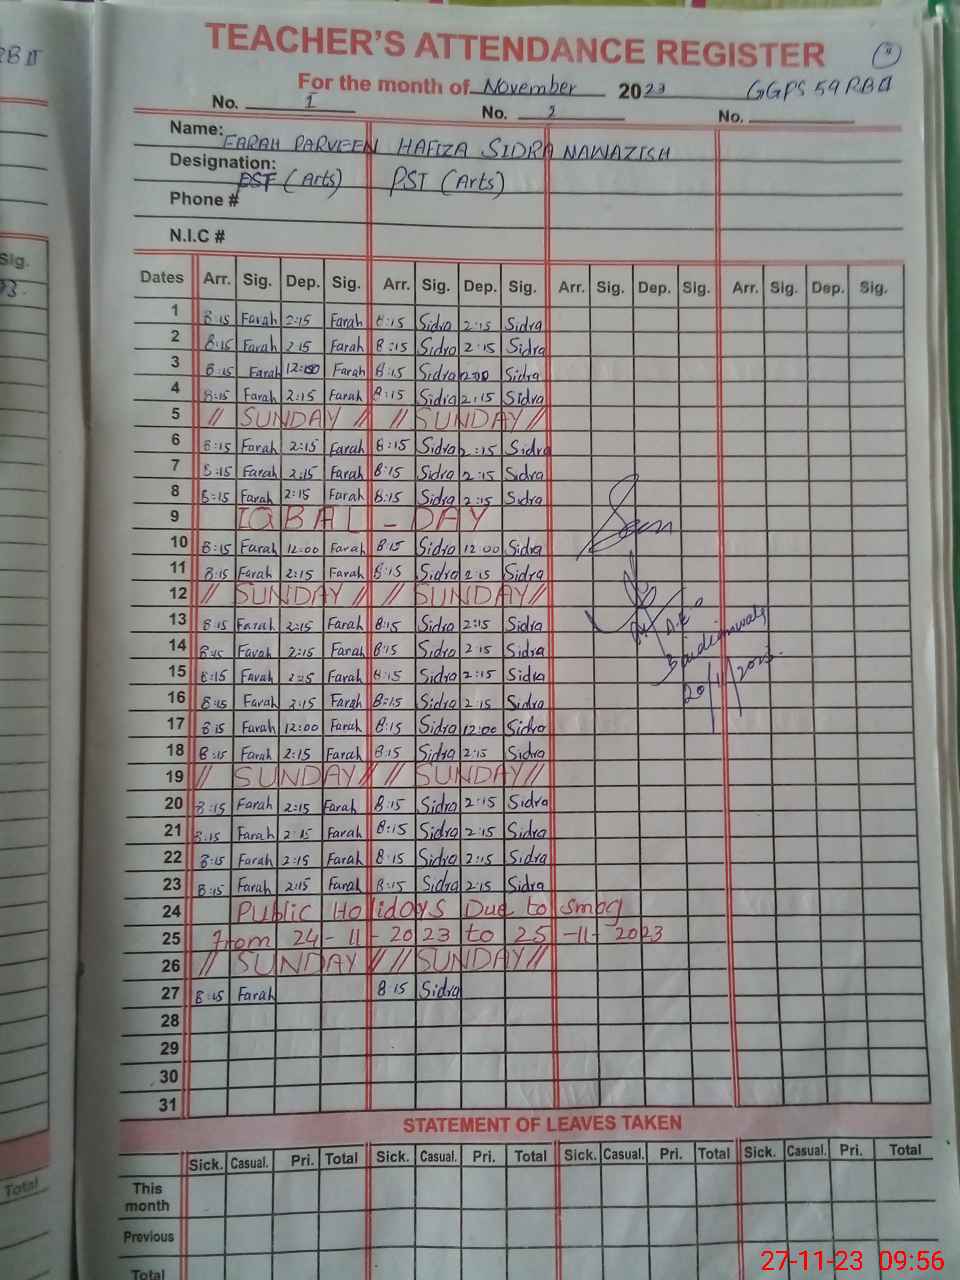 TEACHER'S ATTENDANCE REGISTER
For the month of November 2023 GGPS 59 RB II
No. I No. 2 No.
Name: FARAH PARVEEN HAFIZA SIDRA NAWAZISH
Designation: PST (Arts) PST (Arts)
Phone #
N.I.C #
Dates Arr. Sig. Dep. Sig. Arr. Sig. Dep. Sig. Arr. Sig. Dep. Sig. Arr. Sig. Dep. Sig.
1 8:15 Farah 2:15 Farah 8:15 Sidra 2:15 Sidra
2 8:15 Farah 2:15 Farah 8:15 Sidra 2:15 Sidra
3 8:15 Farah 12:00 Farah 8:15 Sidra 12:00 Sidra
4 8:15 Farah 2:15 Farah 8:15 Sidra 2:15 Sidra
5 // SUNDAY // // SUNDAY //
6 8:15 Farah 2:15 Farah 8:15 Sidra 2:15 Sidra
7 8:15 Farah 2:15 Farah 8:15 Sidra 2:15 Sidra
8 8:15 Farah 2:15 Farah 8:15 Sidra 2:15 Sidra
9 IQBAL - DAY
10 8:15 Farah 12:00 Farah 8:15 Sidra 12:00 Sidra
11 8:15 Farah 2:15 Farah 8:15 Sidra 2:15 Sidra
12 // SUNDAY // // SUNDAY //
13 8:15 Farah 2:15 Farah 8:15 Sidra 2:15 Sidra
14 8:15 Farah 2:15 Farah 8:15 Sidra 2:15 Sidra
15 8:15 Farah 2:15 Farah 8:15 Sidra 2:15 Sidra
16 8:15 Farah 2:15 Farah 8:15 Sidra 2:15 Sidra
17 8:15 Farah 12:00 Farah 8:15 Sidra 12:00 Sidra
18 8:15 Farah 2:15 Farah 8:15 Sidra 2:15 Sidra
19 // SUNDAY // // SUNDAY //
20 8:15 Farah 2:15 Farah 8:15 Sidra 2:15 Sidra
21 8:15 Farah 2:15 Farah 8:15 Sidra 2:15 Sidra
22 8:15 Farah 2:15 Farah 8:15 Sidra 2:15 Sidra
23 8:15 Farah 2:15 Farah 8:15 Sidra 2:15 Sidra
24 Public Holidays Due to Smog
25 From 24-11-2023 to 25-11-2023
26 // SUNDAY // // SUNDAY //
27 8:15 Farah 8:15 Sidra
28
29
30
31
20/11/2023
STATEMENT OF LEAVES TAKEN
Sick. Casual. Pri. Total Sick. Casual. Pri. Total Sick. Casual. Pri. Total Sick. Casual. Pri. Total
This month
Previous
Total
Sig.
Total
27-11-23 09:56